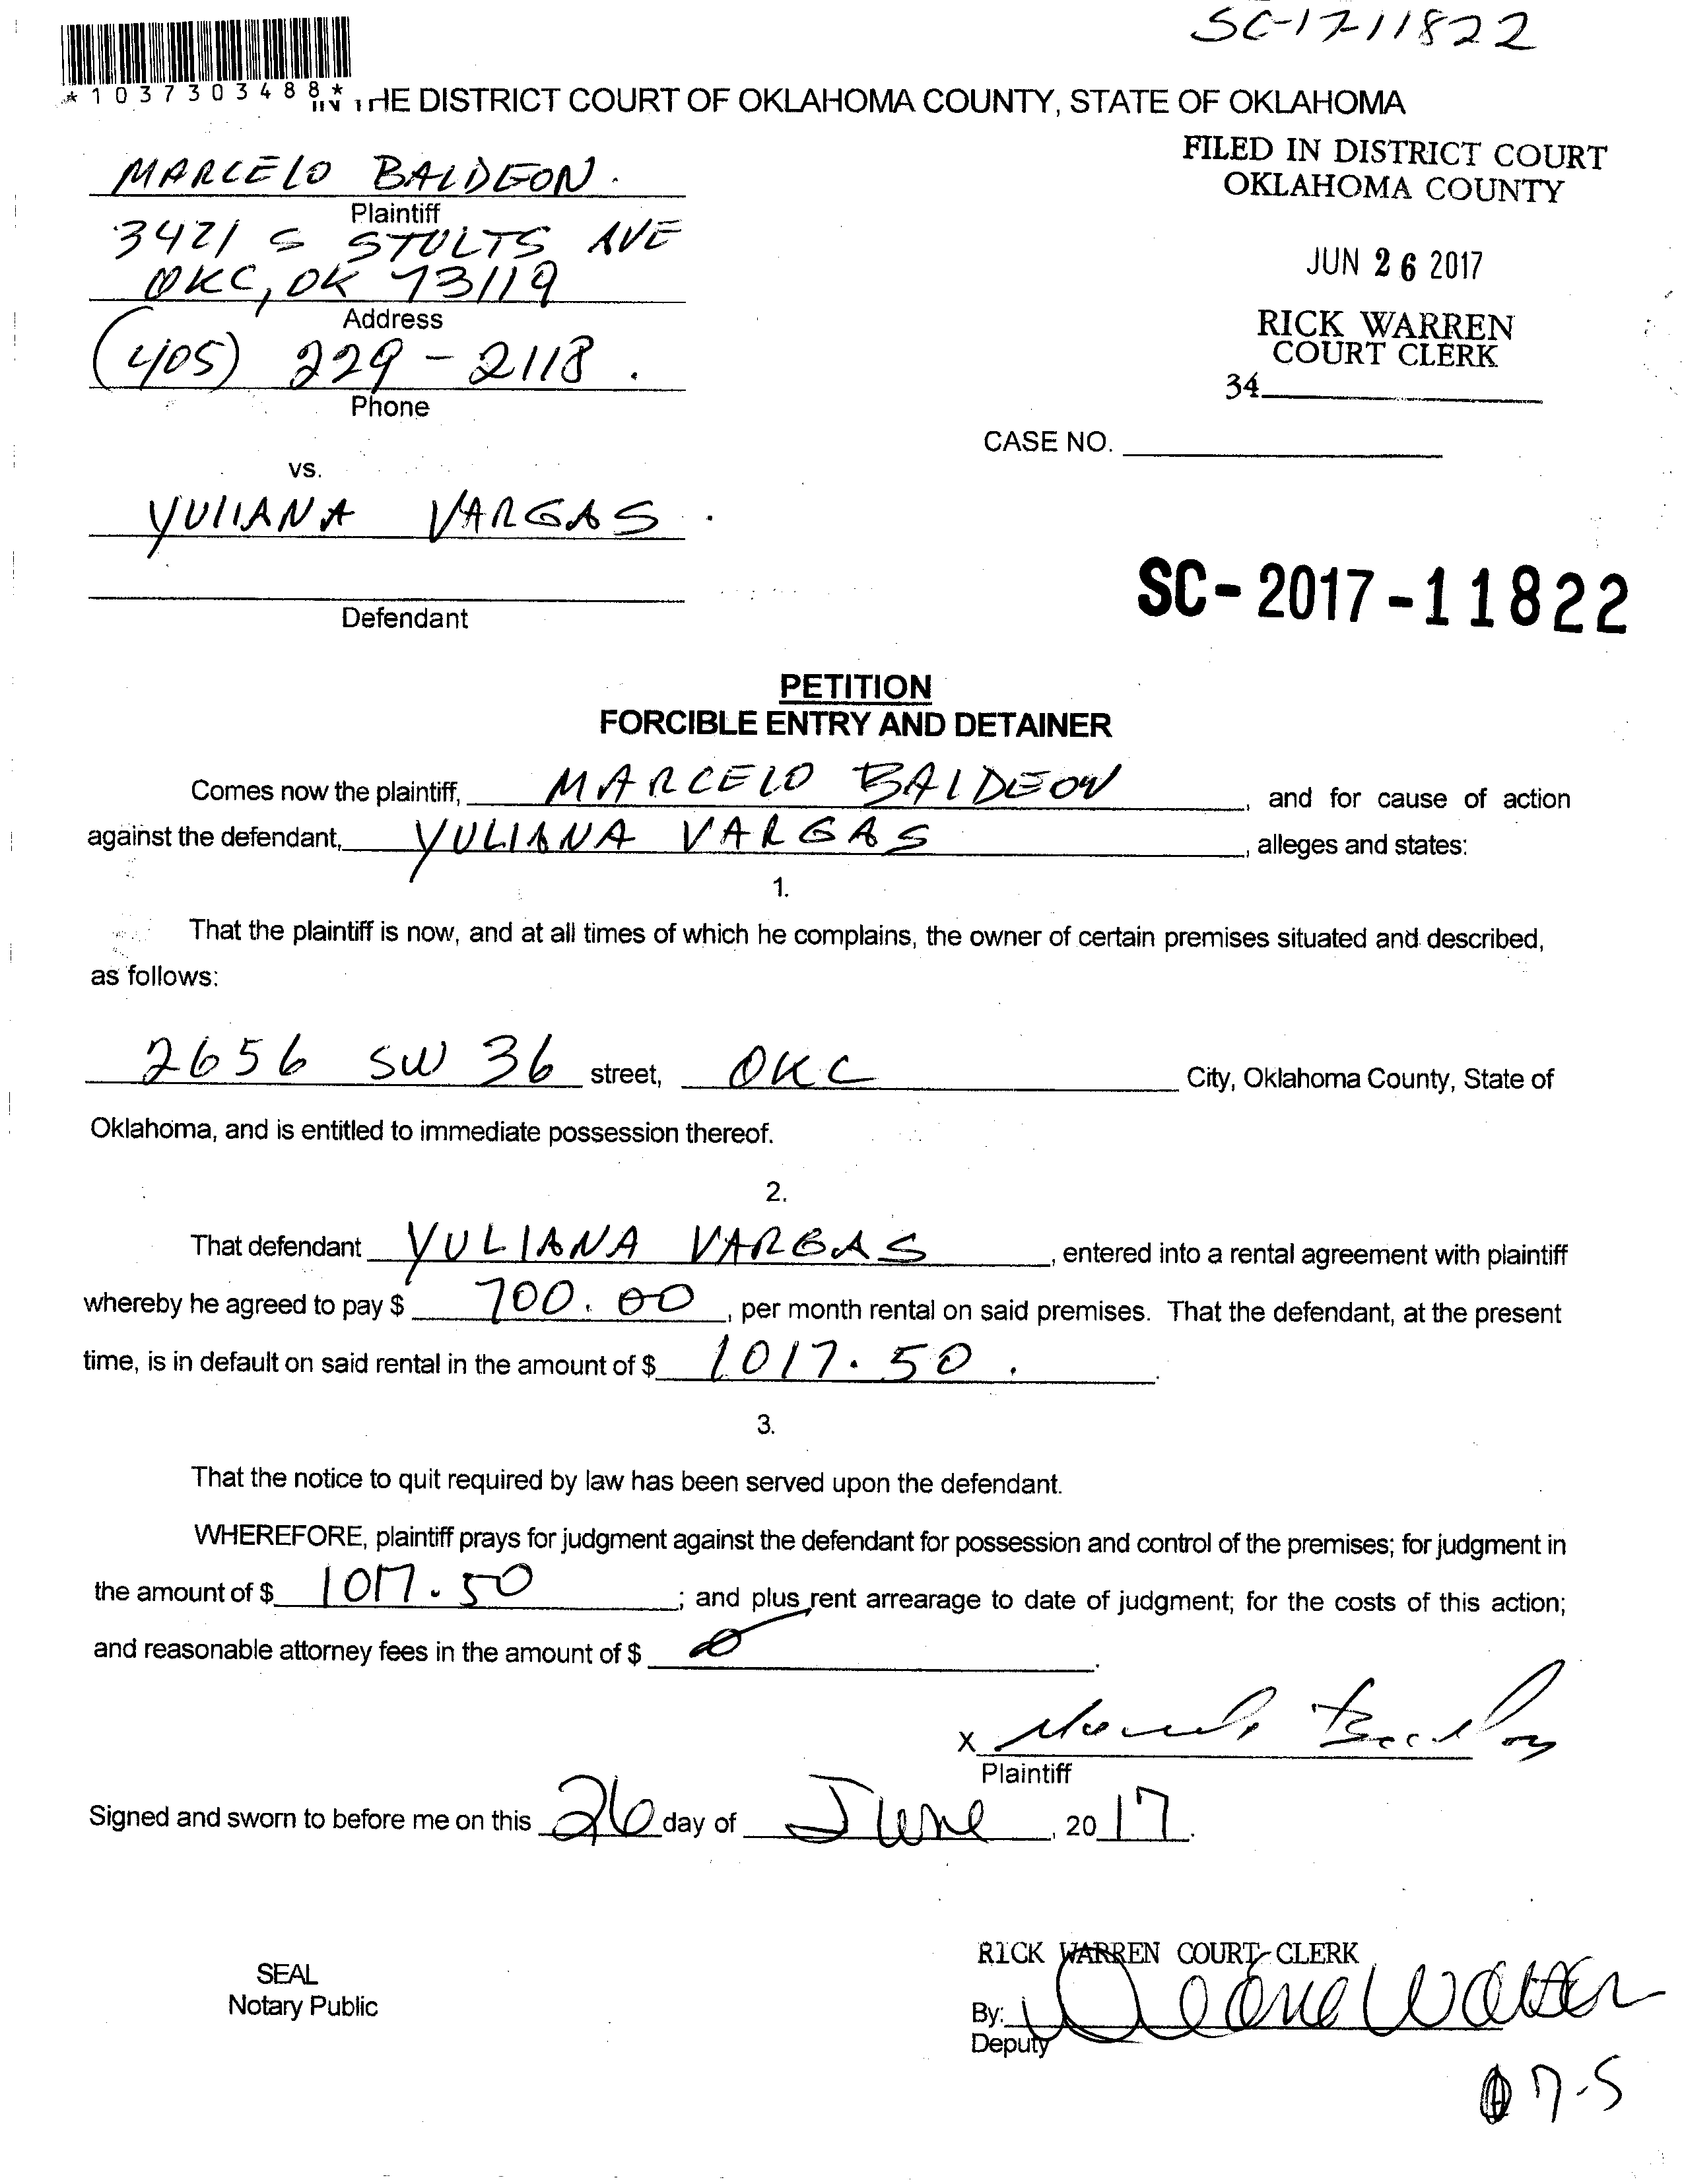 SC-17-11822
*1037303488*
IN THE DISTRICT COURT OF OKLAHOMA COUNTY, STATE OF OKLAHOMA
FILED IN DISTRICT COURT
OKLAHOMA COUNTY
JUN 26 2017
RICK WARREN
COURT CLERK
34
MARCELO BALDEON.
Plaintiff
3421 S STULTS AVE
OKC, OK 73119
Address
(405) 229-2118.
Phone
CASE NO.
vs.
YULIANA VARGAS.
Defendant
SC-2017-11822
PETITION
FORCIBLE ENTRY AND DETAINER
Comes now the plaintiff, MARCELO BALDEON, and for cause of action
against the defendant, YULIANA VARGAS, alleges and states:
1.
That the plaintiff is now, and at all times of which he complains, the owner of certain premises situated and described,
as follows:
2656 SW 36 street, OKC City, Oklahoma County, State of
Oklahoma, and is entitled to immediate possession thereof.
2.
That defendant YULIANA VARGAS, entered into a rental agreement with plaintiff
whereby he agreed to pay $ 700.00, per month rental on said premises. That the defendant, at the present
time, is in default on said rental in the amount of $ 1017.50.
3.
That the notice to quit required by law has been served upon the defendant.
WHEREFORE, plaintiff prays for judgment against the defendant for possession and control of the premises; for judgment in
the amount of $ 1017.50; and plus rent arrearage to date of judgment; for the costs of this action;
and reasonable attorney fees in the amount of $ 0.
X
Plaintiff
Signed and sworn to before me on this 26 day of June, 2017.
RICK WARREN COURT CLERK
SEAL
Notary Public
By:
Deputy
7-5